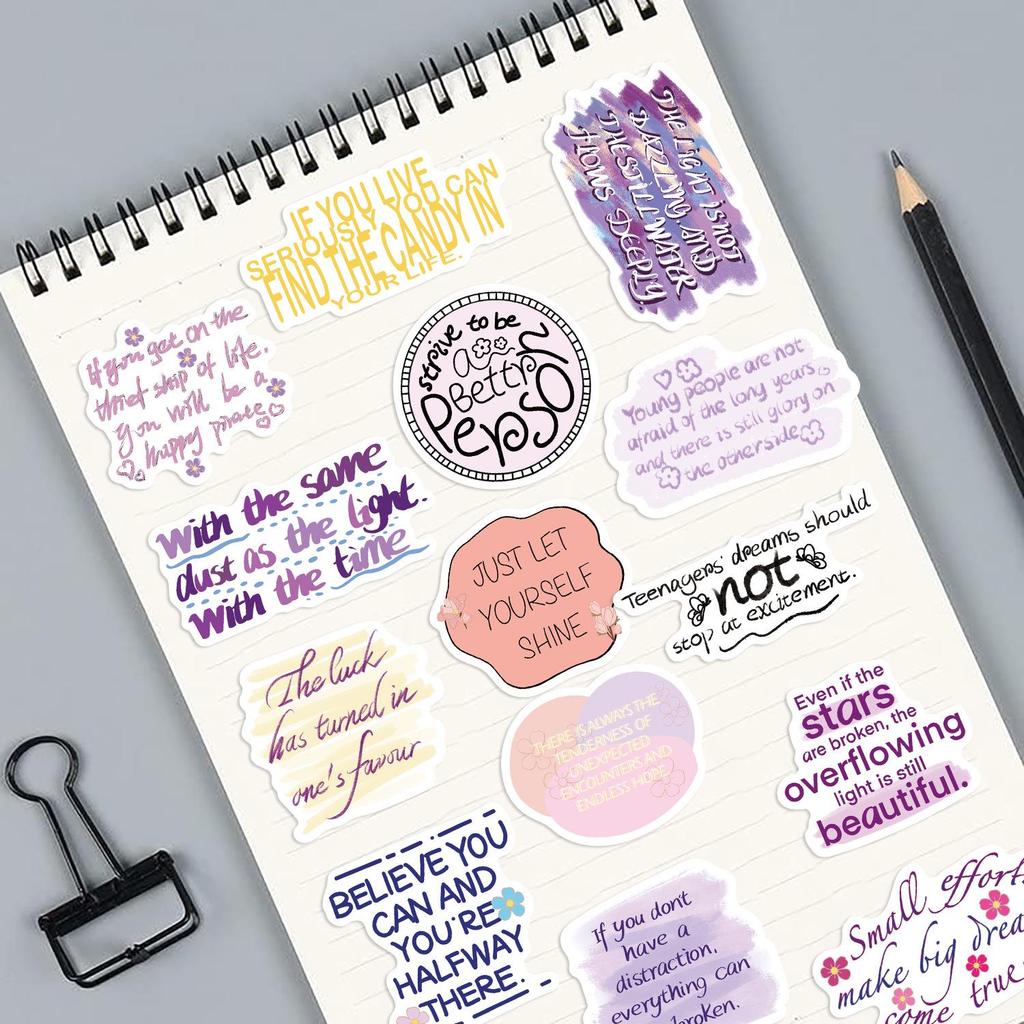 IF YOU LIVE
SERIOUSLY, YOU CAN
FIND THE CANDY IN
YOUR LIFE.
THE LIGHT IS NOT
DAZZLING, AND
THE STILL WATER
FLOWS DEEPLY.
If you get on the
thief ship of life.
you will be a
happy pirate
strive to be
a
Better
Person
Young people are not
afraid of the long years
and there is still glory on
the otherside
with the same
dust as the light.
with the time
JUST LET
YOURSELF
SHINE
Teenagers' dreams should
not
stop at excitement.
The luck
has turned in
one's favour
THERE IS ALWAYS THE
TENDERNESS OF
UNEXPECTED
ENCOUNTERS AND
ENDLESS HOPE
Even if the
stars
are broken, the
overflowing
light is still
beautiful.
BELIEVE YOU
CAN AND
YOU'RE
HALFWAY
THERE.
If you don't
have a
distraction,
everything can
broken.
Small efforts
make big
come true